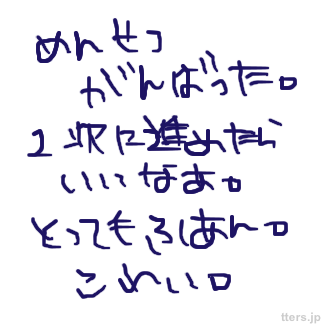 めんせつ
がんばった。
2次に進めたら
いいなあ。
とってもふあん。
こわい。
tters.jp